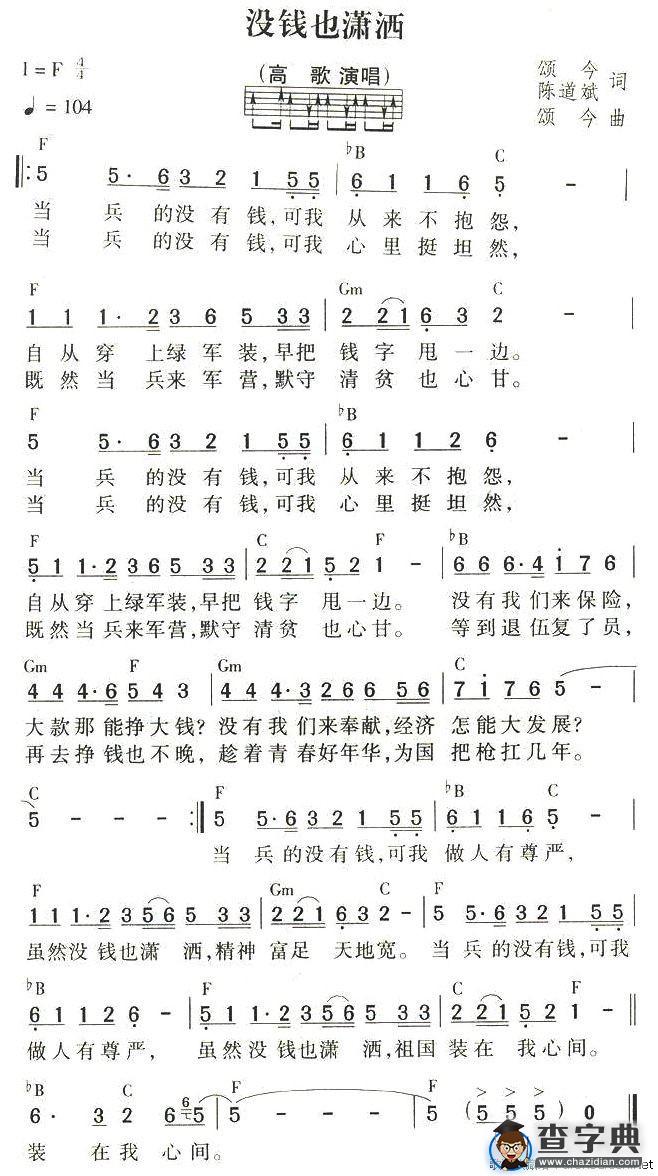 没钱也潇洒
1=F 4/4
(高 歌 演唱)
颂 今 词
陈道斌
♩= 104
颂 今 曲
F ♭B C
5 5· 6 3 2 1 5 5 6 1 1 6 5 –
当 兵 的没有钱,可我 从来不抱怨,
当 兵 的没有钱,可我 心里挺坦然,
F Gm C
1 1 1· 2 3 6 5 3 3 2 2 2 1 6 3 2 –
自从穿 上绿军装,早把 钱字甩一边。
既然当 兵来军营,默守 清贫也心甘。
F ♭B
5 5· 6 3 2 1 5 5 6 1 1 2 6 ·
当 兵 的没有钱,可我 从来不抱怨,
当 兵 的没有钱,可我 心里挺坦然,
F C F ♭B
5 1 1· 2 3 6 5 3 3 2 2 2 1 5 2 1 – 6 6 6· 4 1 7 6
自从穿上绿军装,早把 钱字 甩一边。 没有我们来保险,
既然当兵来军营,默守 清贫 也心甘。 等到退伍复了员,
Gm F Gm C
4 4 4· 6 5 4 3 4 4 4· 3 2 6 6 5 6 7 1 7 6 5 5 –
大款那能挣大钱?没有我们来奉献,经济 怎能大发展?
再去挣钱也不晚, 趁着青春好年华,为国 把枪扛几年。
C F ♭B C
5 – – · 5 5· 6 3 2 1 5 5 6 1 1 6 5 –
当 兵的没有钱,可我 做人有尊严,
F Gm C F
1 1 1· 2 3 5 6 5 3 3 2 2 2 1 6 3 2 – 5 5· 6 3 2 1 5 5
虽然没 钱也潇 洒,精神 富足 天地宽。 当 兵的没有钱,可我
♭B F C F
6 1 1 2 6 – 5 1 1· 2 3 5 6 5 3 3 2 2 2 1 5 2 1 –
做人有尊严, 虽然没钱也潇 洒,祖国 装在 我心间。
♭B C F F
6· 3 2 6 6 5 5 – – – 5 (5 5 5) 0
装 在我 心间。
查字典
www.chazidian.com